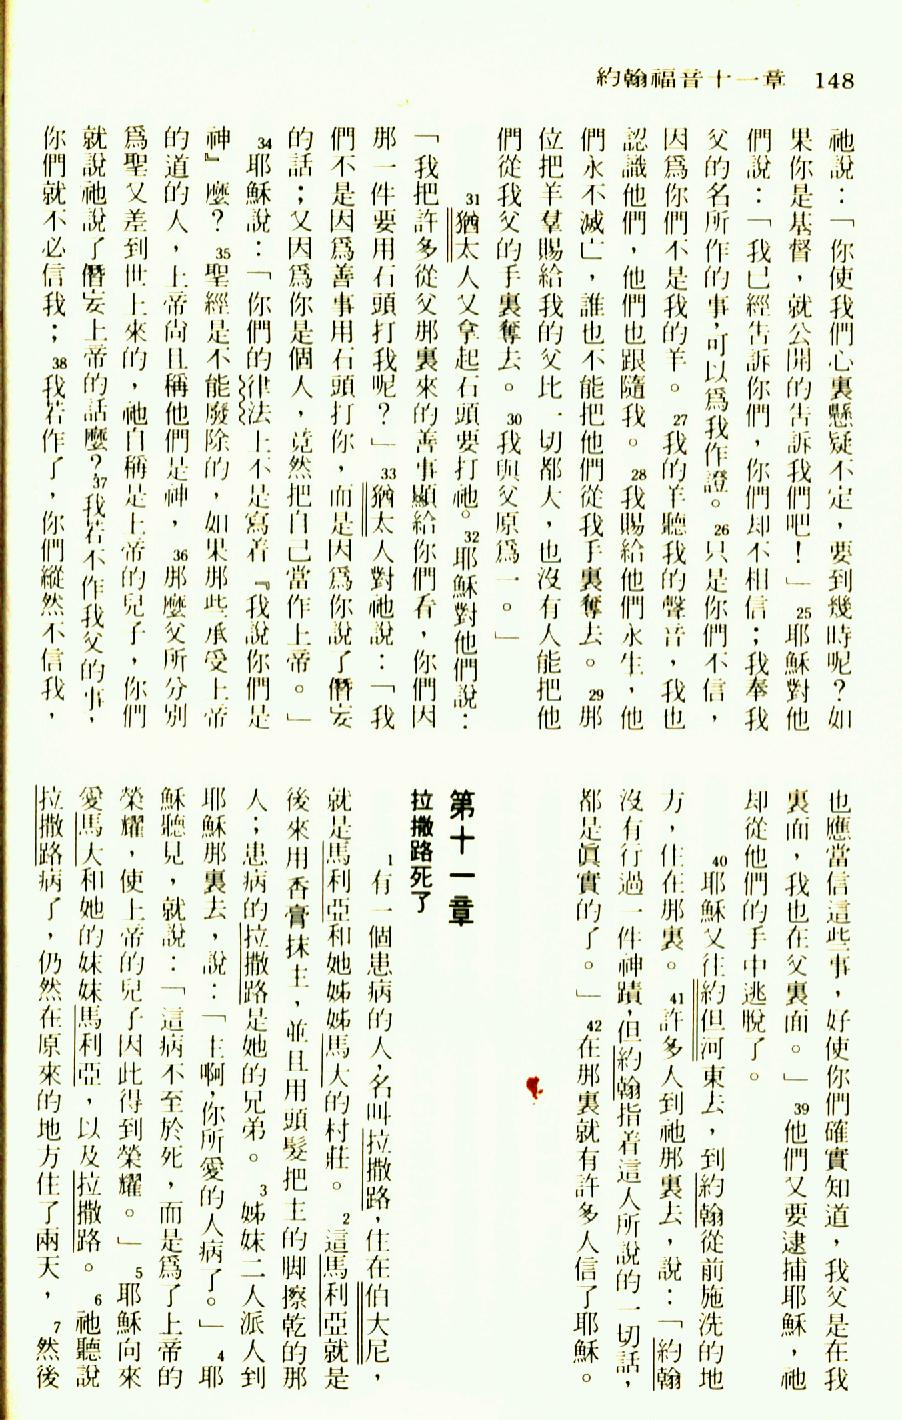 約翰福音十一章 148
祂說：「你使我們心裏懸疑不定，要到幾時呢？如
果你是基督，就公開的告訴我們吧！」25耶穌對他
們說：「我已經告訴你們，你們却不相信；我奉我
父的名所作的事，可以爲我作證。26只是你們不信，
因爲你們不是我的羊。27我的羊聽我的聲音，我也
認識他們，他們也跟隨我。28我賜給他們永生，他
們永不滅亡，誰也不能把他們從我手裏奪去。29那
位把羊羣賜給我的父比一切都大，也沒有人能把他
們從我父的手裏奪去。30我與父原爲一。」
31猶太人又拿起石頭要打祂。32耶穌對他們說：
「我把許多從父那裏來的善事顯給你們看，你們因
那一件要用石頭打我呢？」33猶太人對祂說：「我
們不是因爲善事用石頭打你，而是因爲你說了僭妄
的話；又因爲你是個人，竟然把自己當作上帝。」
34耶穌說：「你們的律法上不是寫着『我說你們是
神』麼？35聖經是不能廢除的，如果那些承受上帝
的道的人，上帝尚且稱他們是神，36那麼父所分別
爲聖又差到世上來的，祂自稱是上帝的兒子，你們
就說祂說了僭妄上帝的話麼？37我若不作我父的事，
你們就不必信我；38我若作了，你們縱然不信我，
也應當信這些事，好使你們確實知道，我父是在我
裏面，我也在父裏面。」39他們又要逮捕耶穌，祂
却從他們的手中逃脫了。
40耶穌又往約但河東去，到約翰從前施洗的地
方，住在那裏。41許多人到祂那裏去，說：「約翰
沒有行過一件神蹟，但約翰指着這人所說的一切話，
都是眞實的了。」42在那裏就有許多人信了耶穌。
第十一章
拉撒路死了
1有一個患病的人，名叫拉撒路，住在伯大尼，
就是馬利亞和她姊姊馬大的村莊。2這馬利亞就是
後來用香膏抹主，並且用頭髮把主的脚擦乾的那
人；患病的拉撒路是她的兄弟。3姊妹二人派人到
耶穌那裏去，說：「主啊，你所愛的人病了。」4耶
穌聽見，就說：「這病不至於死，而是爲了上帝的
榮耀，使上帝的兒子因此得到榮耀。」5耶穌向來
愛馬大和她的妹妹馬利亞，以及拉撒路。6祂聽說
拉撒路病了，仍然在原來的地方住了兩天，7然後